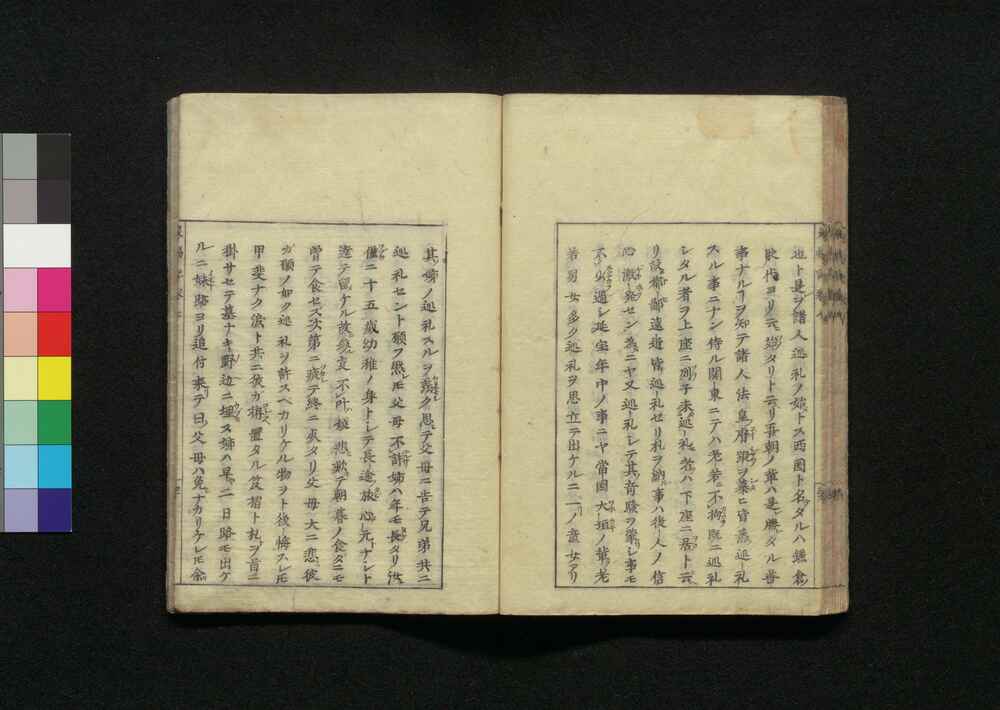 也ト是ヲ諸人巡礼ノ始トス西國ト名タルハ鎌倉
時代ヨリ云始タリト云リ吾朝ノ輩ハ是ニ勝タル善
事ナルヿヲ知テ諸人法皇ノ跡ヲ慕ヒ皆巡礼
スル事ニナン侍ル関東ニテハ老若ニ不拘既ニ巡礼
シタル者ヲ上座ニ列子未巡礼者ハ下座ニ居ト云
リ故都鄙遠近皆巡礼セリ札ヲ納事ハ後人ノ信
心ヲ発セン為ニヤ又巡礼シテ其奇験ヲ蒙シ事モ
不少過シ延宝年中ノ事ニヤ當国大垣ノ輩老
若男女多ク巡礼ヲ思立テ出ケルニ一ノ童女アリ
其姉ノ巡礼スルヲ羨ク思テ父母ニ告テ兄弟共ニ
巡礼セント願フ然レモ父母不許姉ハ年モ長タリ汝
僅ニ十五歳幼稚ノ身トシテ長途ノ旅心元ナシト
達テ留ケル故與ニ支不叶極悲歎テ朝暮ノ食タニモ
曽テ食セス次第ニ疲テ終ニ死タリ父母大ニ悲彼
カ願ノ如ク巡礼ヲ許スヘカリケル物ヲト後悔スレモ
甲斐ナク泣ト共ニ彼カ拵置タル笈摺ト札ヲ首ニ
掛サセテ墓ナキ野辺ニ埋ス姉ハ早二日路モ出ケ
ルニ妹跡ヨリ追付来テ曰父母ハ免ナカリケレモ余